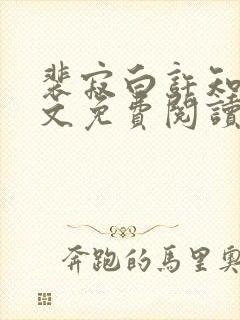 裴寂白許知
文免費閱讀
奔跑的馬里奧